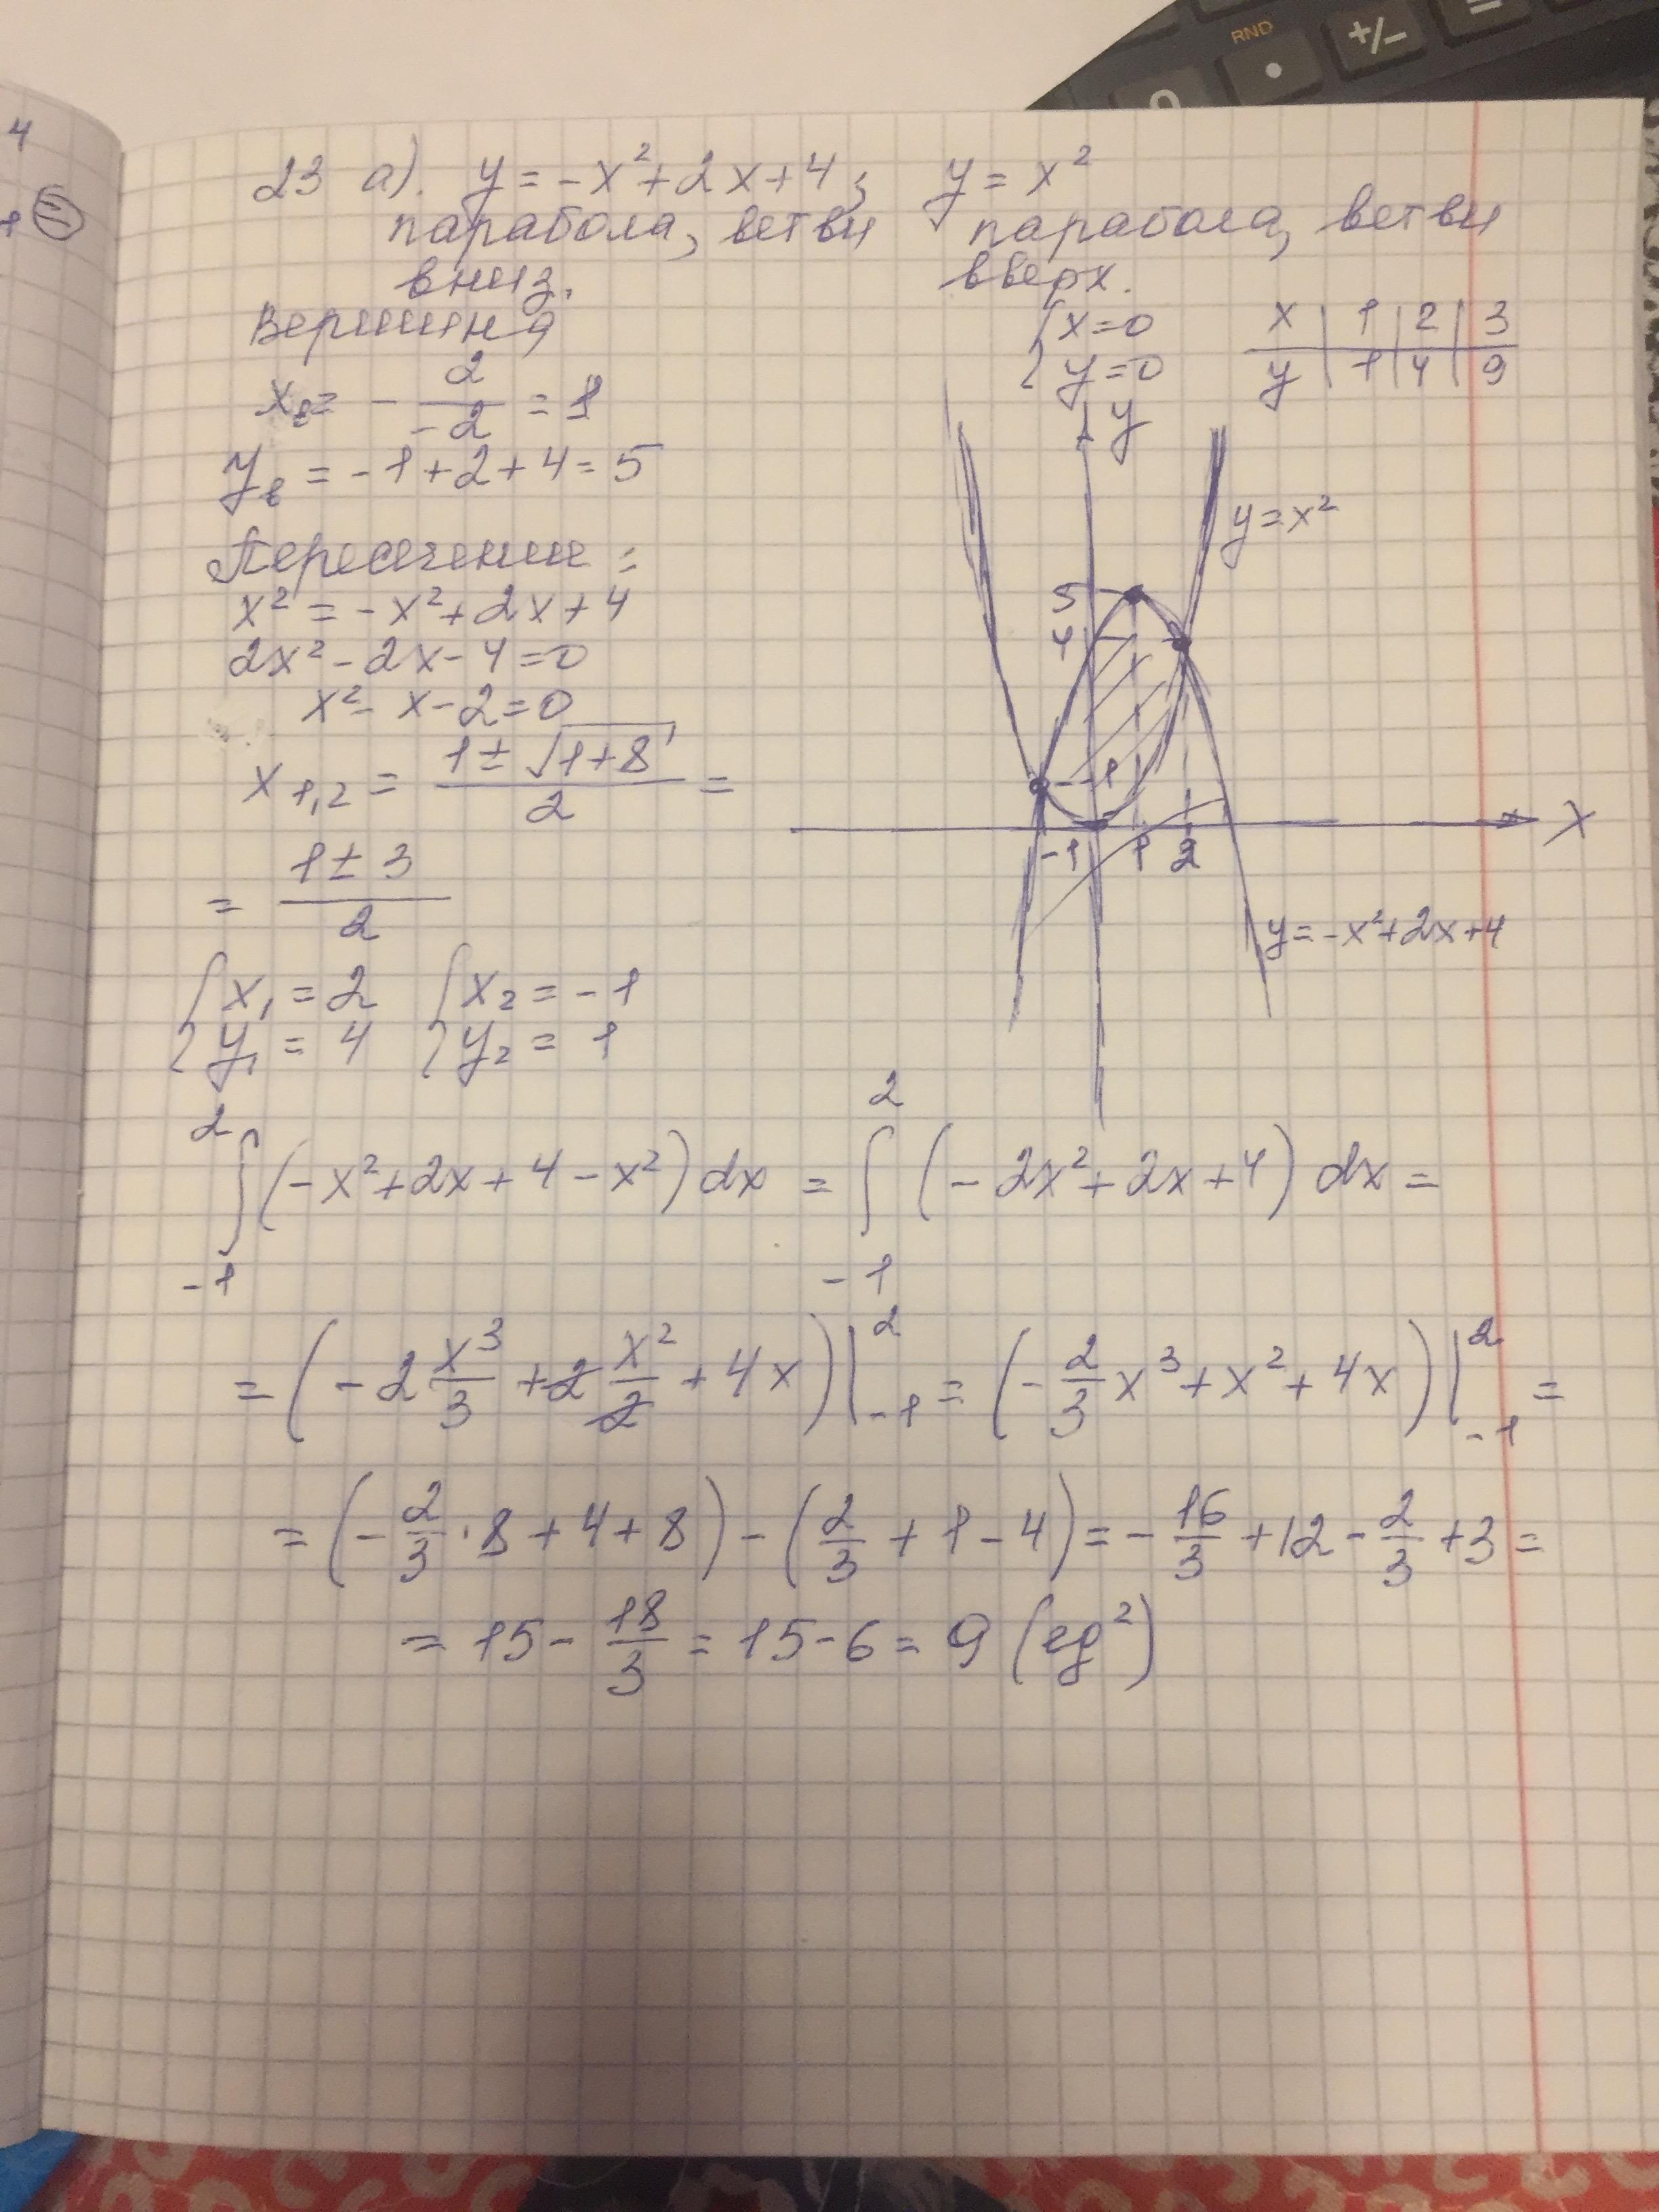 RND
+/-
=
4
23 а). y = -x² + 2x + 4; y = x²
парабола, ветви парабола, ветви
вниз. вверх.
Вершина
{ x=0
{ y=0
x | 1 | 2 | 3
y | 1 | 4 | 9
xв = - 2/-2 = 1
yв = -1+2+4=5
Пересечение:
x² = -x²+2x+4
2x²-2x-4=0
x²-x-2=0
x1,2 = (1 ± √(1+8))/2 =
= (1 ± 3)/2
{ x₁ = 2 { x₂ = -1
{ y₁ = 4 { y₂ = 1
y
y=x²
5
4
1
-1 1 2
x
y=-x²+2x+4
∫₋₁² (-x²+2x+4-x²)dx = ∫₋₁² (-2x²+2x+4) dx =
= (-2 x³/3 + 2 x²/2 + 4x)|₋₁² = (-2/3 x³+x²+4x)|₋₁² =
= (-2/3 · 8+4+8) - (2/3 + 1 - 4) = -16/3 +12 - 2/3 +3 =
= 15 - 18/3 = 15-6 = 9 (ед²)